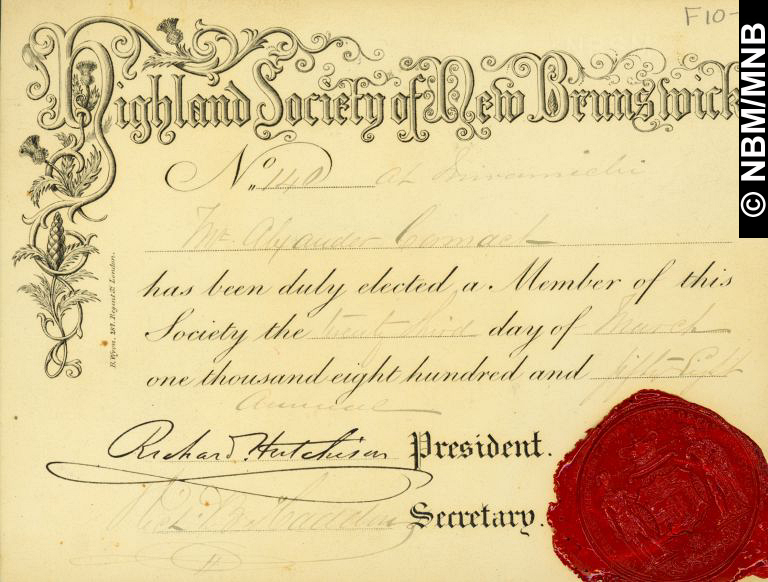 F10-
© NBM/MNB
Highland Society of New Brunswick
No. 140 at Miramichi
Mr. Alexander Comack
has been duly elected a Member of this
Society the twenty third day of March
one thousand eight hundred and fifty Eight
annual
Richard Hutchison President.
Secretary.
B. Wyon, 287, Regent St. London.